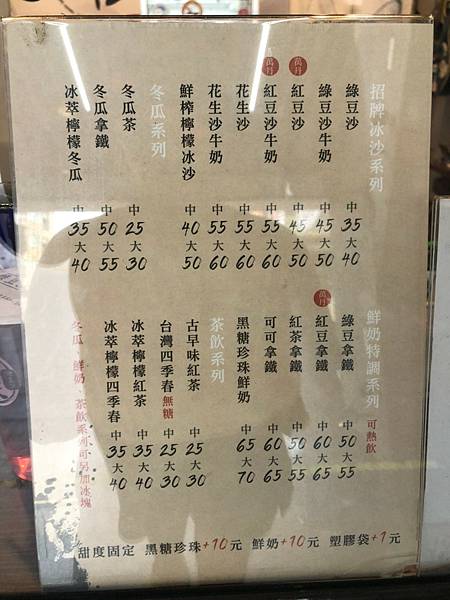 招牌冰沙系列
綠豆沙 中 35 大 40
綠豆沙牛奶 中 45 大 50
萬丹 紅豆沙 中 45 大 50
萬丹 紅豆沙牛奶 中 55 大 60
花生沙 中 55 大 60
花生沙牛奶 中 55 大 60
鮮榨檸檬冰沙 中 40 大 50
冬瓜系列
冬瓜茶 中 25 大 30
冬瓜拿鐵 中 50 大 55
冰萃檸檬冬瓜 中 35 大 40
鮮奶特調系列 可熱飲
綠豆拿鐵 中 50 大 55
萬丹 紅豆拿鐵 中 60 大 65
紅茶拿鐵 中 50 大 55
可可拿鐵 中 60 大 65
黑糖珍珠鮮奶 中 65 大 70
茶飲系列
古早味紅茶 中 25 大 30
台灣四季春 無糖 中 25 大 30
冰萃檸檬紅茶 中 35 大 40
冰萃檸檬四季春 中 35 大 40
冬瓜、鮮奶、茶飲系列可另加冰塊
甜度固定 黑糖珍珠+10元 鮮奶+10元 塑膠袋+1元